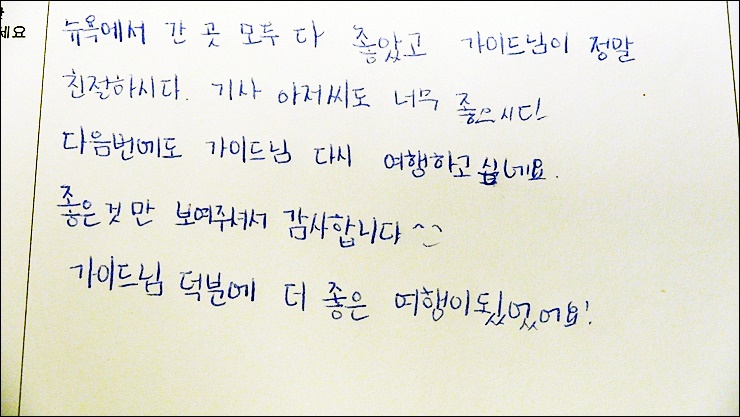 세요
뉴욕에서 간 곳 모두 다 좋았고 가이드님이 정말
친절하시다. 기사 아저씨도 너무 좋으시다!
다음번에도 가이드님 다시 여행하고 싶네요.
좋은것만 보여주셔서 감사합니다 ^^
가이드님 덕분에 더 좋은 여행이됬었어요!